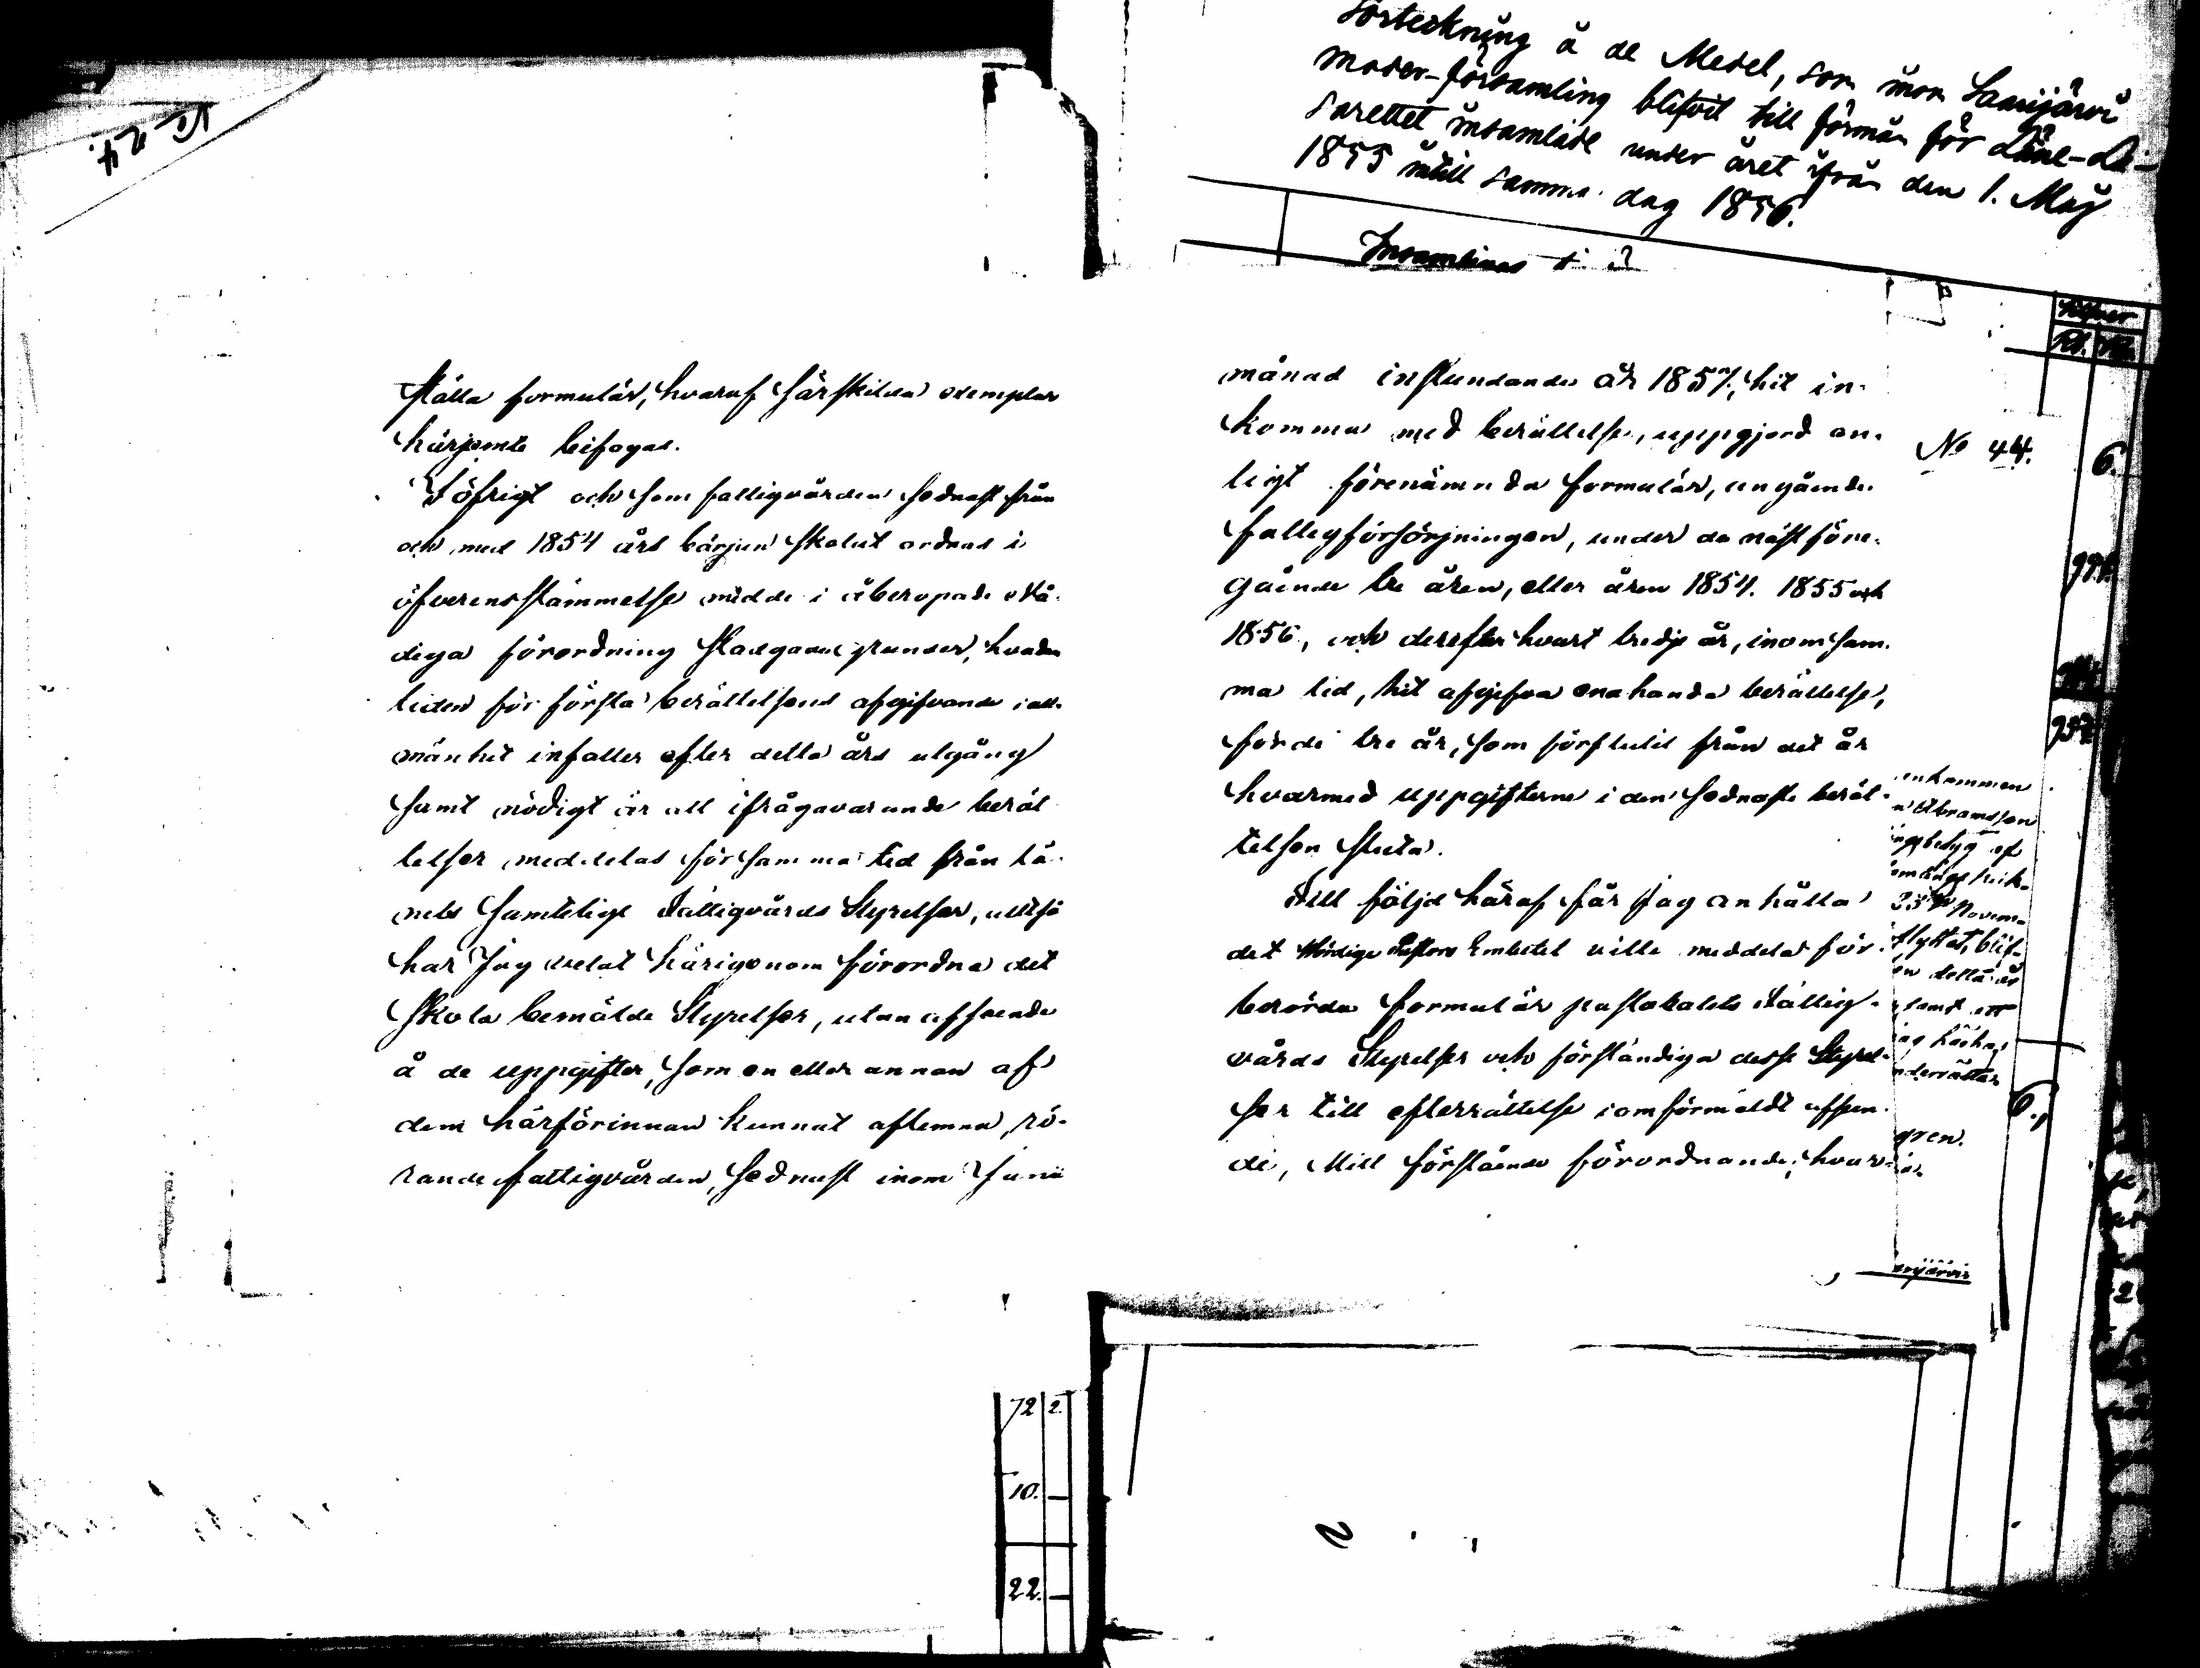 No 24.
Förteckning å de Medel, som inom Saarijärvi
moder-församling blifvit till förmån för Läne-La-
sarettet insamlade under året ifrån den 1. Maj
1855 intill samma dag 1856.
Insamlings
Silfver
Rb.
stälta formulär, hvaraf särskilda exemplar
härjemte bifogas.
I öfrigt och som fattigvården sednast från
och med 1854 års början skolat ordnas i
öfverensstämmelse med de i åberopade nå-
diga förordning stadgade grunder, hvadan
tiden för första berättelsens afgifvande i all-
mänhet infaller efter detta års utgång
samt nödigt är att ifrågavarande berät
telser meddelas för samma tid från Lä-
nets samtelige Fattigvårds Styrelser, alltså
har Jag velat härigenom förordna det
skola bemälde Styrelser, utan afseende
å de uppgifter, som en eller annan af
dem härförinnan kunnat aflemna, rö-
rande fattigvården, sednast inom Junii
månad instundande år 1857, hit in-
komma med berättelse, uppgjord en-
ligt förenämnda formulär, angående
fattigförsörjningen, under de näst före-
gående tre åren, eller åren 1854. 1855 och
1856, och derefter hvart tredje år, inom sam-
ma tid, hit afgifva enahanda berättelse,
för de tre år, som förflutit från det år
hvarmed uppgifterne i den sednaste berät-
telsen sluta.
Till följd häraf får Jag anhålla
det Vördige Pastors Embetet ville meddela för-
berörda formulär pastoratets Fattig-
vårds Styrelser och förständiga desse Styrel-
ser till efterrättelse i omförmäldt afseen-
de, Mitt förstående förordnande; hvar-
No 44.
6.
enkommen
Abramsson
ingsbetyg af
25 Novem-
flyttat, blif-
en detta år
samt ett
underrättar
gren.
6.,
arijärvis
72 2.
10. _
22. _
2